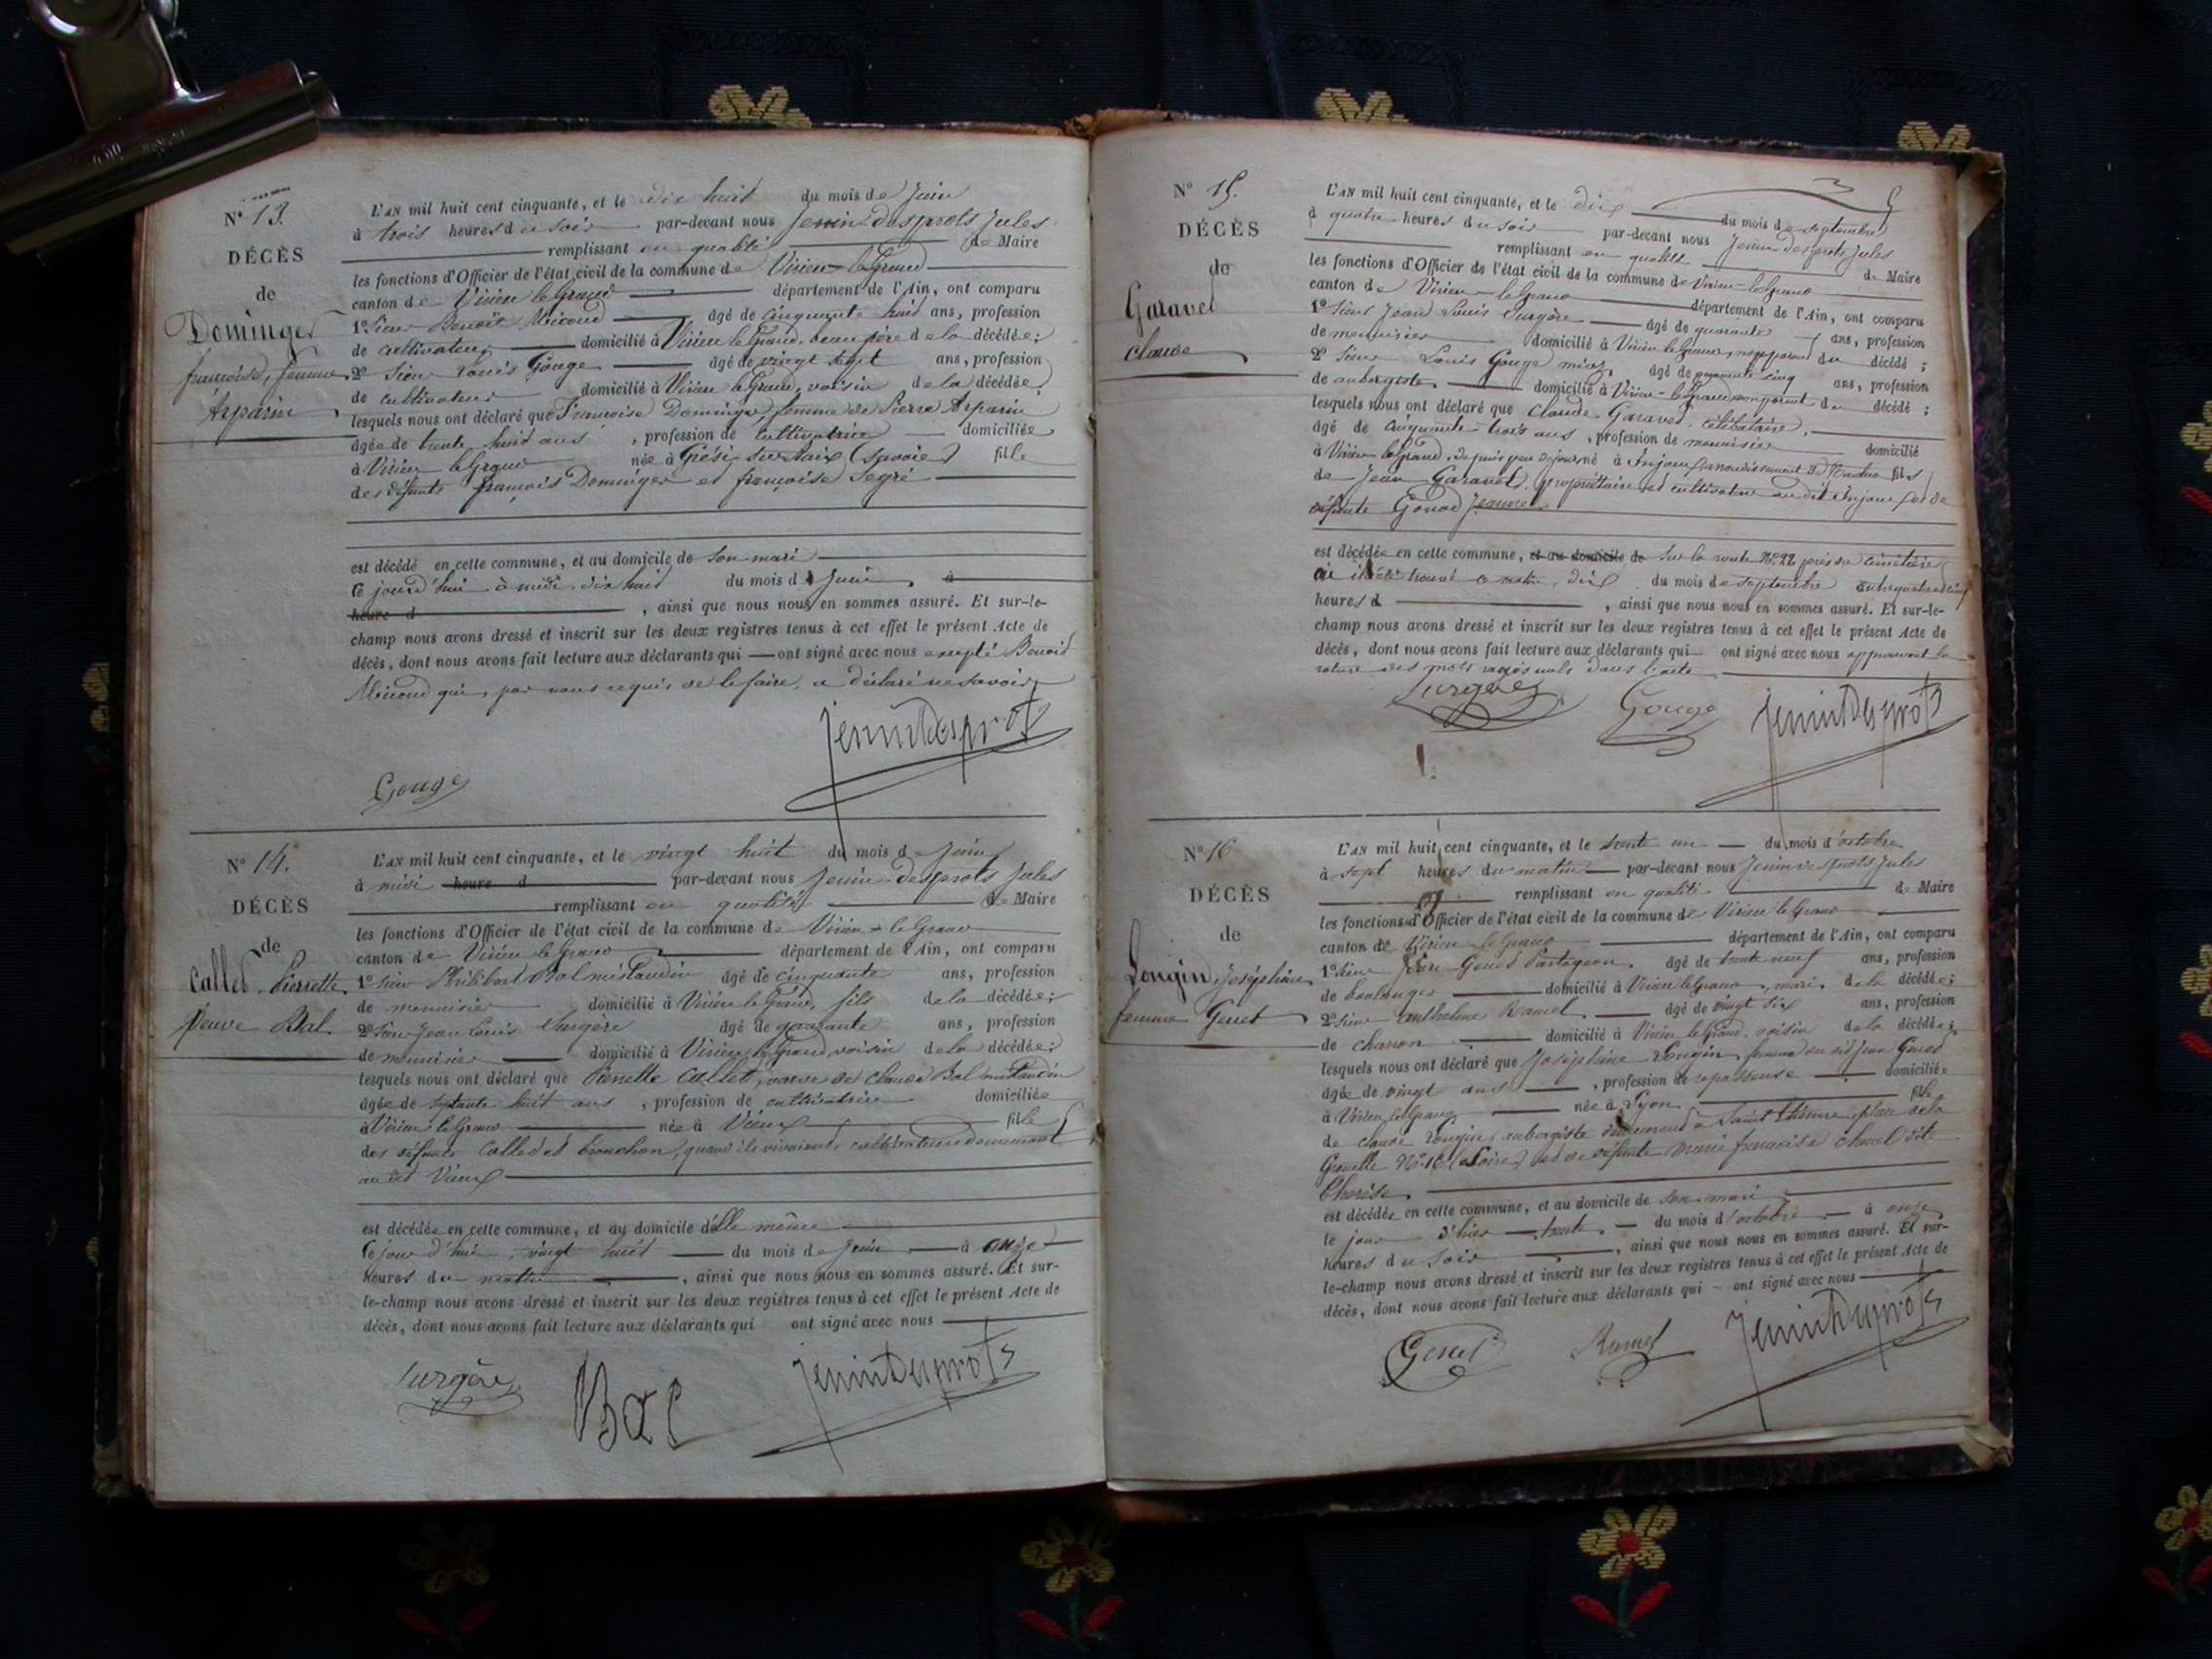 N° 13.
DÉCÈS
de
Dominger
françoise, femme
Arparin
L'AN mil huit cent cinquante, et le dix huit du mois de Juin
à trois heures du soir par-devant nous Jenin-desprots Jules
remplissant en qualité de Maire
les fonctions d'Officier de l'état civil de la commune de Virieu-le-Grand
canton de Virieu le Grand département de l'Ain, ont comparu
1° Sieur Benoît Micoud âgé de cinquante huit ans, profession
de cultivateur domicilié à Virieu le Grand, beau père de la décédée;
2° Sieur Louis Gouge âgé de vingt sept ans, profession
de cultivateur domicilié à Virieu le Grand, voisin de la décédée;
lesquels nous ont déclaré que Françoise Dominger, femme de Pierre Arparin
âgée de trente huit ans, profession de cultivatrice domiciliée
à Virieu le Grand née à Grésy sur Aix (Savoie) fille
des défunts françois Dominger et françoise Segré
est décédé en cette commune, et au domicile de son mari
Ce jourd'hui à midi, dix huit du mois de Juin, à
heure d , ainsi que nous nous en sommes assuré. Et sur-le-
champ nous avons dressé et inscrit sur les deux registres tenus à cet effet le présent Acte de
décès, dont nous avons fait lecture aux déclarants qui ont signé avec nous excepté Benoit
Micoud qui, par nous requis de le faire, a déclaré ne savoir
JeninDesprots
Gouge
N° 14.
DÉCÈS
de
Callet Pierrette
veuve Bal
L'AN mil huit cent cinquante, et le vingt huit du mois de Juin
à midi heure d par-devant nous Jenin-desprots Jules
remplissant en qualité de Maire
les fonctions d'Officier de l'état civil de la commune de Virieu-le-Grand
canton de Virieu le Grand département de l'Ain, ont comparu
1° Sieur Philibert Bal mistaudin âgé de cinquante ans, profession
de menuisier domicilié à Virieu le Grand, fils de la décédée;
2° Sieur Jean Louis Surgère âgé de quarante ans, profession
de menuisier domicilié à Virieu le Grand, voisin de la décédée;
lesquels nous ont déclaré que Pierrette Callet, veuve de Claude Bal mistaudin
âgée de septante huit ans, profession de cultivatrice domiciliée
à Virieu le Grand née à Vieux fille
des défunts Callet et , quand ils vivaient, cultivateurs demeurant
au dit Vieux
est décédée en cette commune, et au domicile d'elle même
Ce jour d'hui, vingt huit du mois de Juin à onze
heures du matin, ainsi que nous nous en sommes assuré. Et sur-
le-champ nous avons dressé et inscrit sur les deux registres tenus à cet effet le présent Acte de
décès, dont nous avons fait lecture aux déclarants qui ont signé avec nous
Surgère
Bal
JeninDesprots
N° 15.
DÉCÈS
de
Garavet
claude
L'AN mil huit cent cinquante, et le dix du mois de septembre
à quatre heures du soir par-devant nous Jenin desprots Jules
remplissant en qualité de Maire
les fonctions d'Officier de l'état civil de la commune de Virieu-le-Grand
canton de Virieu-le-Grand département de l'Ain, ont comparu
1° Sieur Jean Louis Surgère âgé de quarante ans, profession
de menuisier domicilié à Virieu le Grand, non parent du décédé;
2° Sieur Louis Gouge âgé de quarante cinq ans, profession
de aubergiste domicilié à Virieu-le-Grand non parent du décédé;
lesquels nous ont déclaré que Claude Garavet, célibataire,
âgé de cinquante trois ans, profession de menuisier domicilié
à Virieu le Grand, depuis peu de jour, né à Injoux (arrondissement de Nantua) fils
de Jean Garavet, propriétaire et cultivateur au dit Injoux, et de
défunte Gonod Jeanne
est décédée en cette commune, et au domicile de sur la route N° 22 près le cimetière
où il a été trouvé ce matin, dix du mois de septembre entre quatre et cinq
heures d , ainsi que nous nous en sommes assuré. Et sur-le-
champ nous avons dressé et inscrit sur les deux registres tenus à cet effet le présent Acte de
décès, dont nous avons fait lecture aux déclarants qui ont signé avec nous approuvant la
rature des mots rayés nuls dans l'acte
Surgère
Gouge
JeninDesprots
N° 16
DÉCÈS
de
Longin, Joséphine
femme Genet
L'AN mil huit cent cinquante, et le trente un du mois d'octobre
à sept heures du matin par-devant nous Jenin desprots Jules
remplissant en qualité de Maire
les fonctions d'Officier de l'état civil de la commune de Virieu le Grand
canton de Virieu-le-Grand département de l'Ain, ont comparu
1° Sieur Jean Genet âgé de trente neuf ans, profession
de boulanger domicilié à Virieu le Grand, mari de la décédée;
2° Sieur anthelme Ramel âgé de vingt six ans, profession
de charron domicilié à Virieu le Grand, voisin de la décédée;
lesquels nous ont déclaré que Joséphine Longin, femme du dit Jean Genet
âgée de vingt ans, profession de repasseuse domiciliée
à Virieu le Grand née à Lyon fille
de claude Longin, aubergiste demeurant à Saint Etienne, place de la
Grenette N° 16 (Loire) et de défunte Marie françoise dite
Thérèse.
est décédée en cette commune, et au domicile de son mari
le jour d'hier trente du mois d'octobre à onze
heures du soir, ainsi que nous nous en sommes assuré. Et sur-
le-champ nous avons dressé et inscrit sur les deux registres tenus à cet effet le présent Acte de
décès, dont nous avons fait lecture aux déclarants qui ont signé avec nous
Genet
Ramel
JeninDesprots